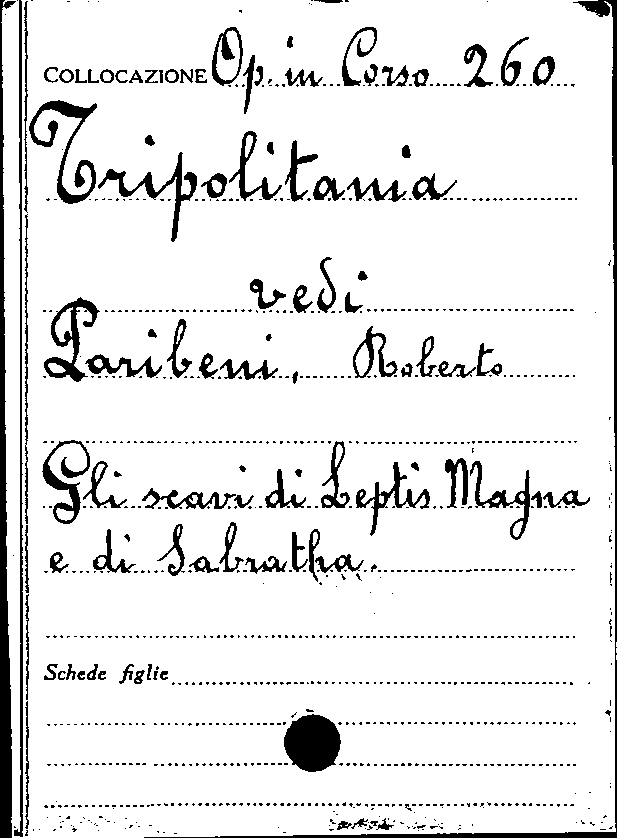 COLLOCAZIONE Op. in Corso 260
Tripolitania
vedi
Paribeni, Roberto
Gli scavi di Leptis Magna
e di Sabratha.
Schede figlie